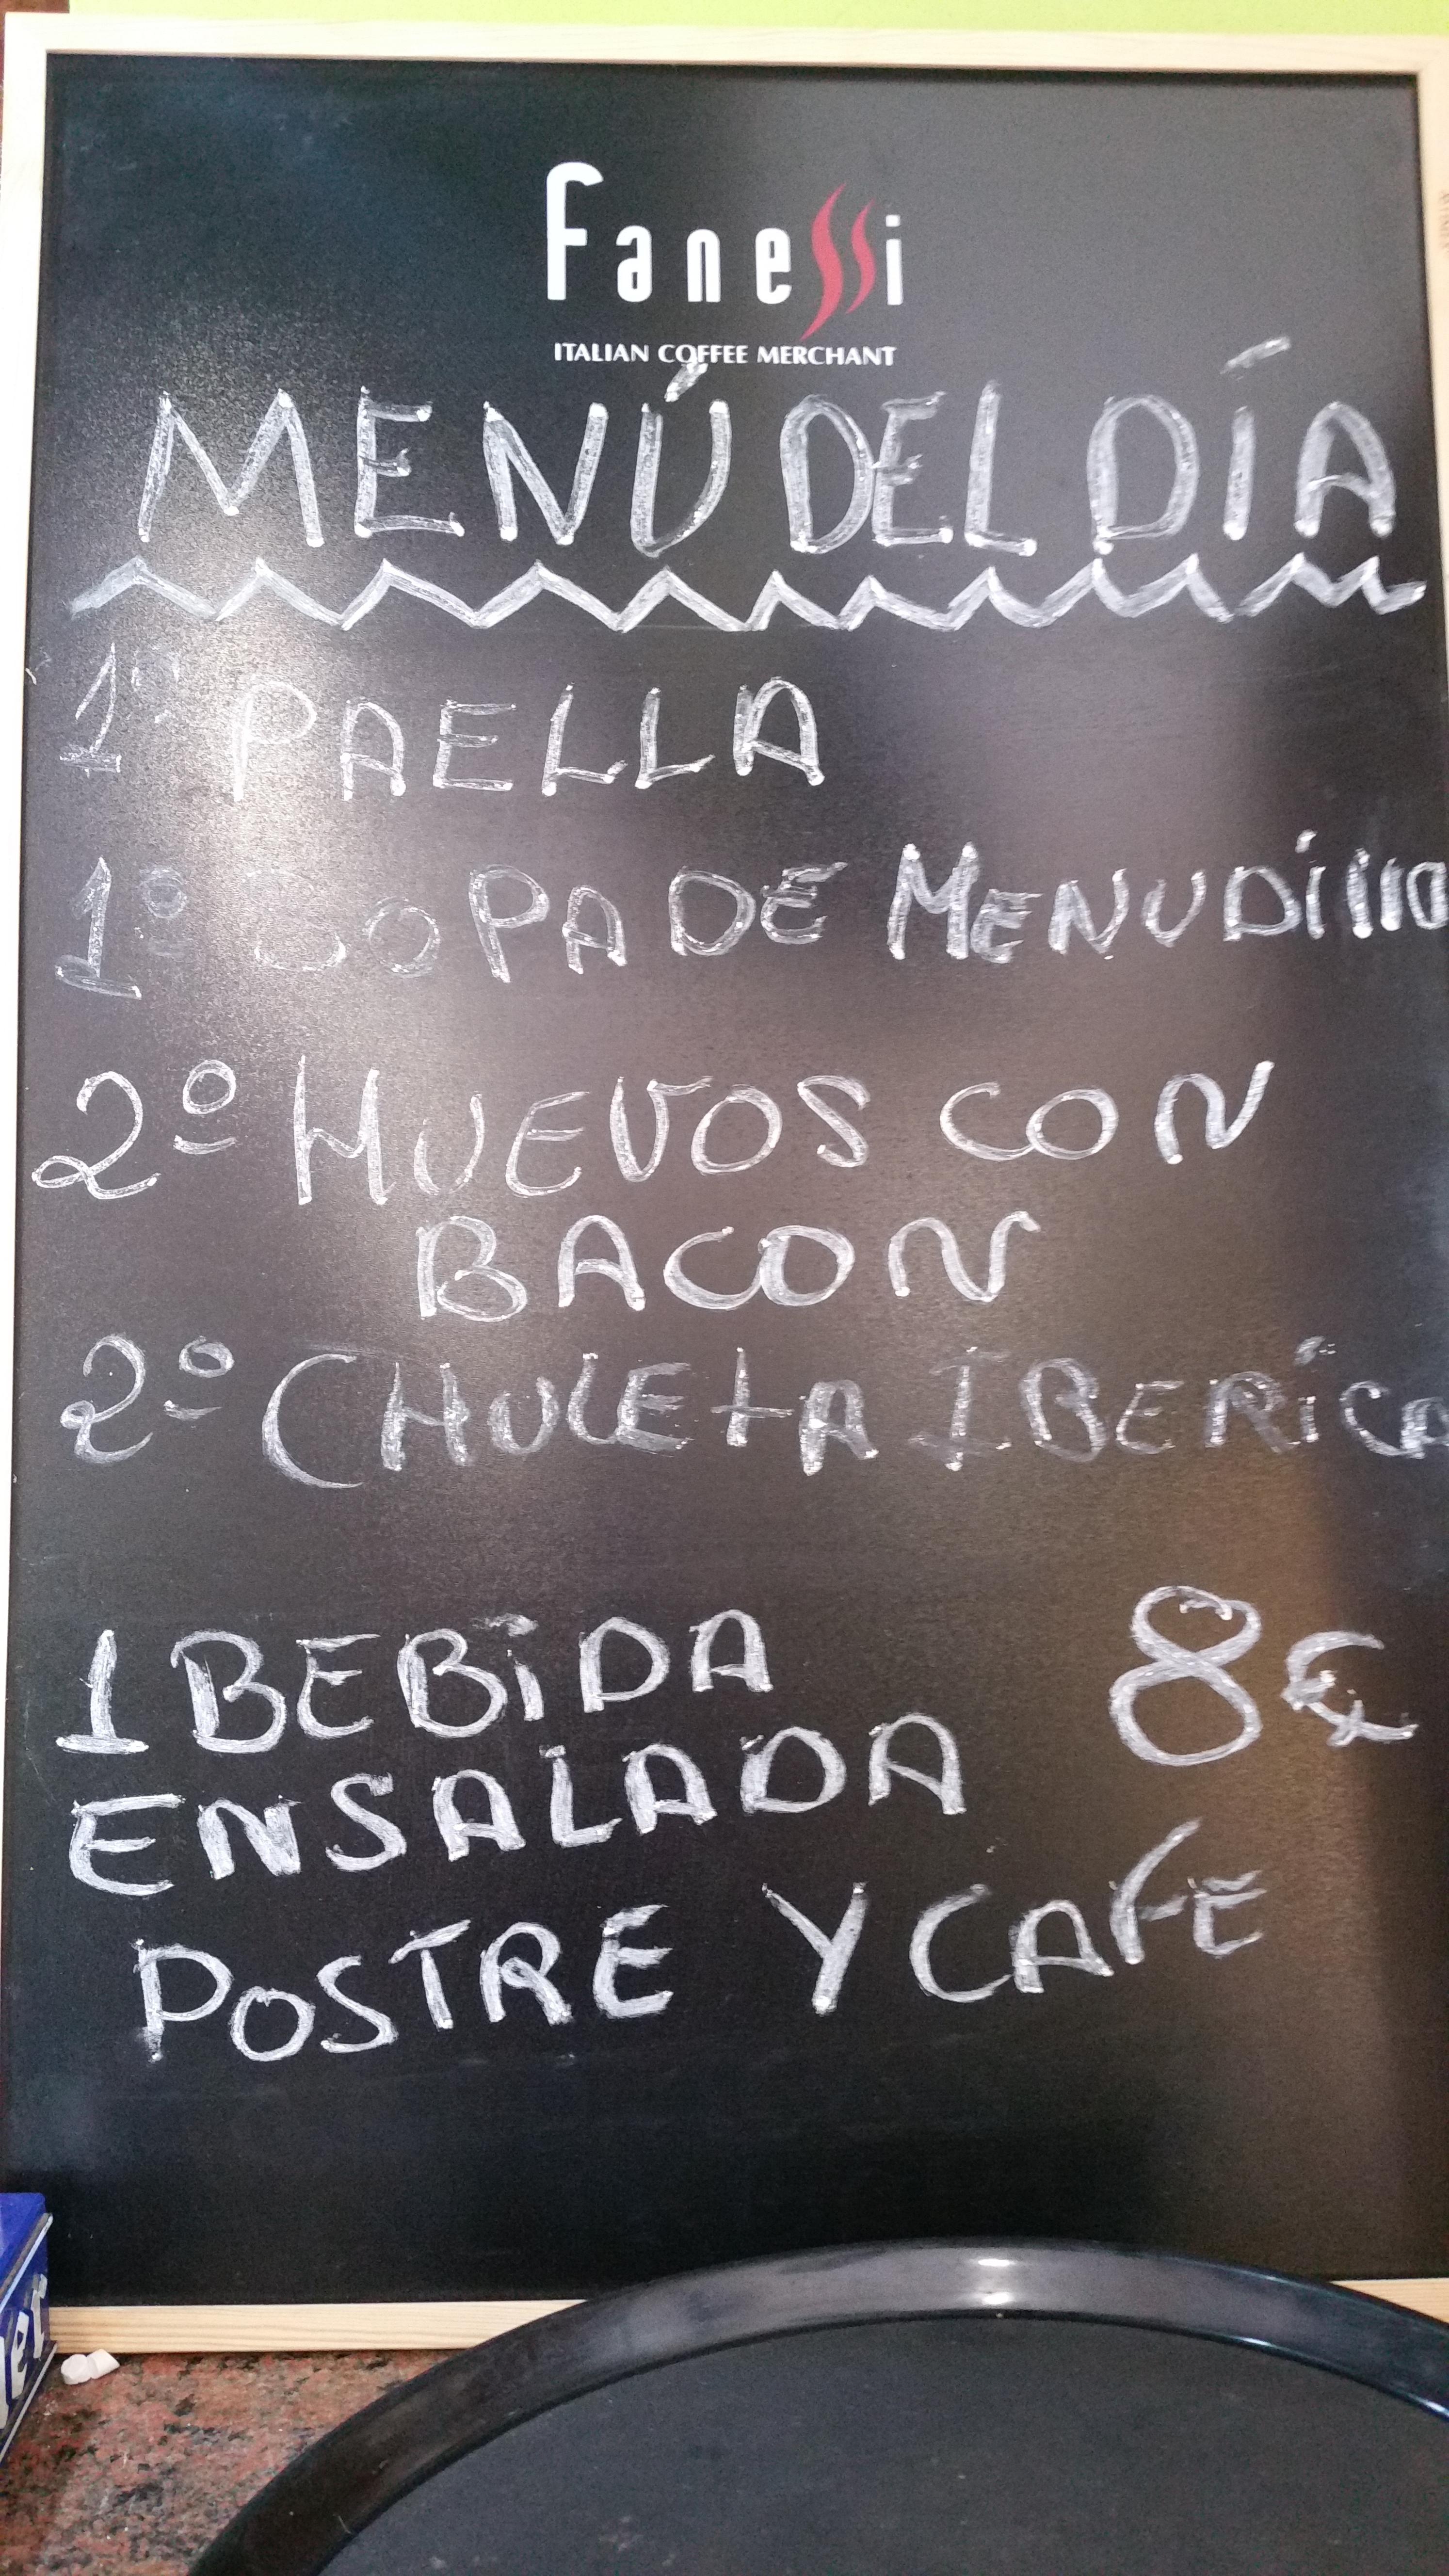 Fanessi
ITALIAN COFFEE MERCHANT
MENÚ DEL DÍA
1º PAELLA
1º SOPA DE MENUDillo
2º HUEVOS CON
BACON
2º CHULETA IBERiCA
1 BEBiDA 8€
ENSALADA
POSTRE Y CAFE